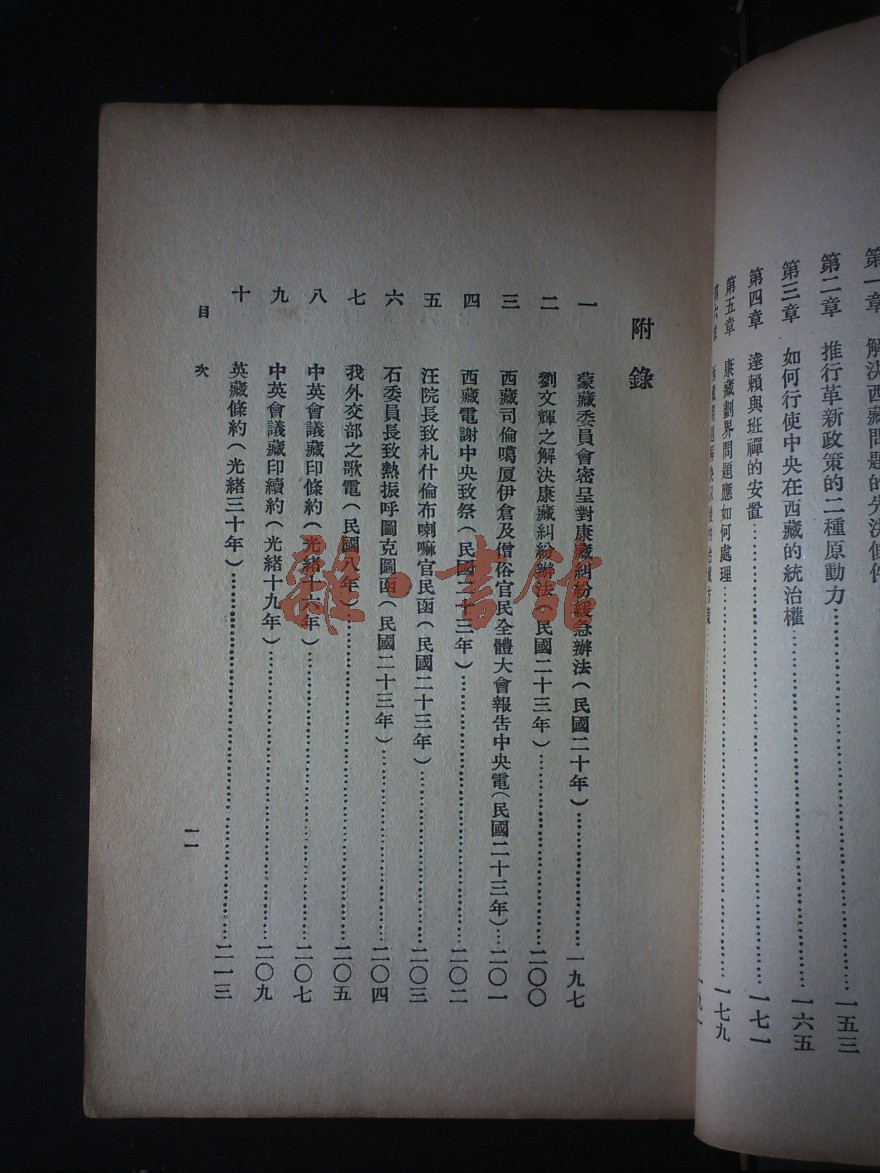 第一章 解決西藏問題的先決條件
第二章 推行革新政策的二種原動力……一五三
第三章 如何行使中央在西藏的統治權……一六五
第四章 達賴與班禪的安置……一七一
第五章 康藏劃界問題應如何處理……一七九
附錄
一 蒙藏委員會密呈對康藏糾紛緩急辦法(民國二十年)……一九七
二 劉文輝之解決康藏糾紛辦法(民國二十三年)……二〇〇
三 西藏司倫噶厦伊倉及僧俗官民全體大會報告中央電(民國二十三年)……二〇一
四 西藏電謝中央致祭(民國二十三年)……二〇二
五 汪院長致札什倫布喇嘛官民函(民國二十三年)……二〇三
六 石委員長致熱振呼圖克圖函(民國二十三年)……二〇四
七 我外交部之歌電(民國八年)……二〇五
八 中英會議藏印條約(光緒十六年)……二〇七
九 中英會議藏印續約(光緒十九年)……二〇九
十 英藏條約(光緒三十年)……二一三
目次
一一
雜·書館